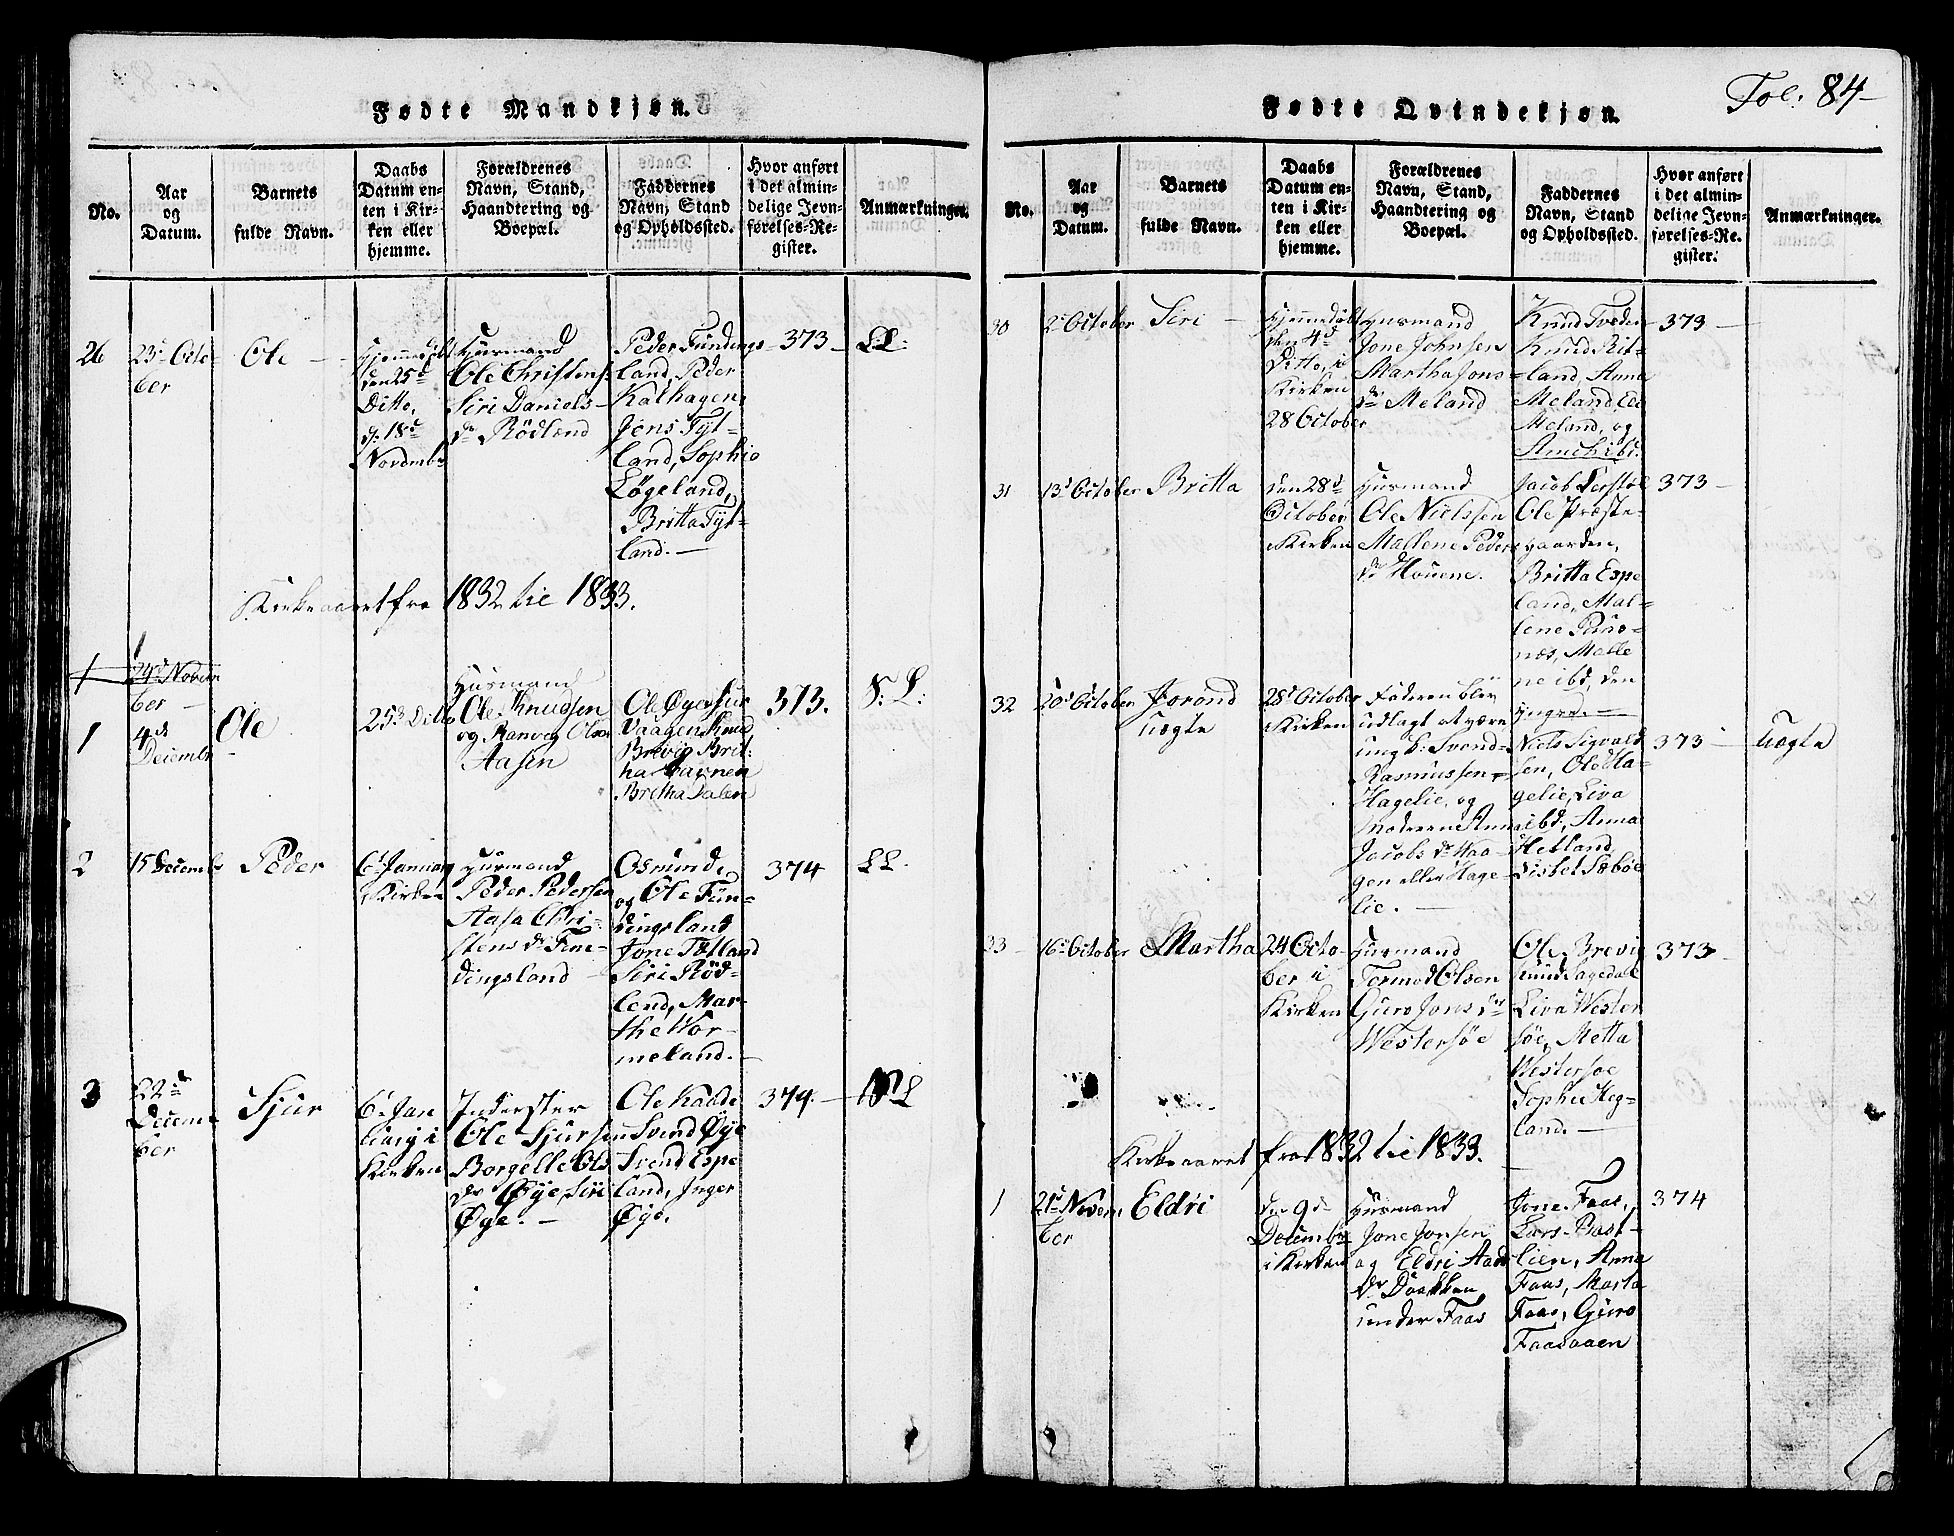 Fødte Mandkjøn.
No.
Aar
og
Datum.
Barnets
fulde Navn.
Daabs
Datum en-
ten i Kir-
ken eller
hjemme.
Forældrenes
Navn, Stand,
Haandtering og
Boepæl.
Faddernes
Navn, Stand
og Opholdssted.
Hvor anført
i det almin-
delige Jevn-
førelses-Re-
gister.
Anmærkninger.
26
23d Octo
ber
Ole
Hjemmedøbt
den 25d
Ditto,
d. 18d
Novembr
Huusmand
Ole Christens.
Siri Daniels-
dr Rödland
Peder Fundings-
land, Peder
Kalhagen,
Jens Tyt-
land, Sophie
Løgeland,
Britta Tyt-
land.
373
LL:
Kirkeaaret fra 1832 til 1833.
1
29d Novem
ber
1
4de
Decembr
Ole
25d Ditto
Huusmand
Ole Knudsen
og Ranveg Ols
Aasen
Ole Øye
Vaagen Knud
Brevig Brit-
ha
Britha Dalen
373.
S: L:
2
15 Decemb
Peder
6t Januar
i Kirken
Huusmand
Peder Pedersen
Aasa Chri-
stens dr Fun-
dingsland
Osmund,
og Ole Fun-
dingsland
Jone Tøtland
Siri Rød-
lend, Mar-
the Wor-
meland.
374
LL.
3
22d
Decem
ber
Sjur
6t Jan
uarij i
Kirken
Inderster
Ole Sjursen
Borgelle Ols
dr Øye, Siri
Øye.
Ole Kaade
Svend Øye
Svend Espe
land, Inger
Øye.
374.
L
Fol: 84
Fødte Qvindekjøn.
No.
Aar
og
Datum.
Barnets
fulde Navn.
Daabs
Datum en-
ten i Kir-
ken eller
hjemme.
Forældrenes
Navn, Stand,
Haandtering og
Boepæl.
Faddernes
Navn, Stand
og Opholdssted.
Hvor anført
i det almin-
delige Jevn-
førelses-Re-
gister.
Anmærkninger.
30
2d October
Siri
Hjemmedøbt
den 4d
Ditto, i
Kirken
28 October
Huusmand
Jone Johnsen
Martha Jons-
dr Meland
Knud Tveden
Knud Rit-
land, Anna
Meland, Eli
Meland, og
Anne ibd.
373
31
13d October
Britta
den 28d
October
i Kirken
Huusmand
Ole Nielssen
Mallene Peders
dr Houene.
Jacob Lerstøl
Ole Præste-
gaarden,
Britta Espe
land, Mal-
lene Puns-
næs, Malle
ne ibd, den
yngre.
373
32
20d October
Jorond
uægte
28d October
i Kirken
Faderen blev
udlagt at være
ung k: Svend
Rasmussen
Hagelie, og
Moderen Anna
Jacobs dr Haa-
gen eller Hage-
lie.
Niels Sigvald
sen, Ole Ha-
gelie, Liva
ibd, Anna
Hetland,
Lisbet Sæbøe
373
uægte
33
16d October
Martha
24 Octo
ber i
Kirken
Huusmand
Tormod Olsen
Guro Jons dr
Westersøe
Ole Brevig
Knud Sagedal
Liva Wester
søe, Metta
Westersøe
Sophie Heg-
land.
373
Kirkeaaret fra 1832 til 1833.
1
21d Novem
ber
Eldri
den 9d
Decembr
i Kirken
Huusmand
Jone Jonsen
og Eldri Aads
dr Dækken
under Faas
Jone Faas,
Lars Bast-
lien, Anna
Faas, Marta
Faas, Guro
Faasaaen
374